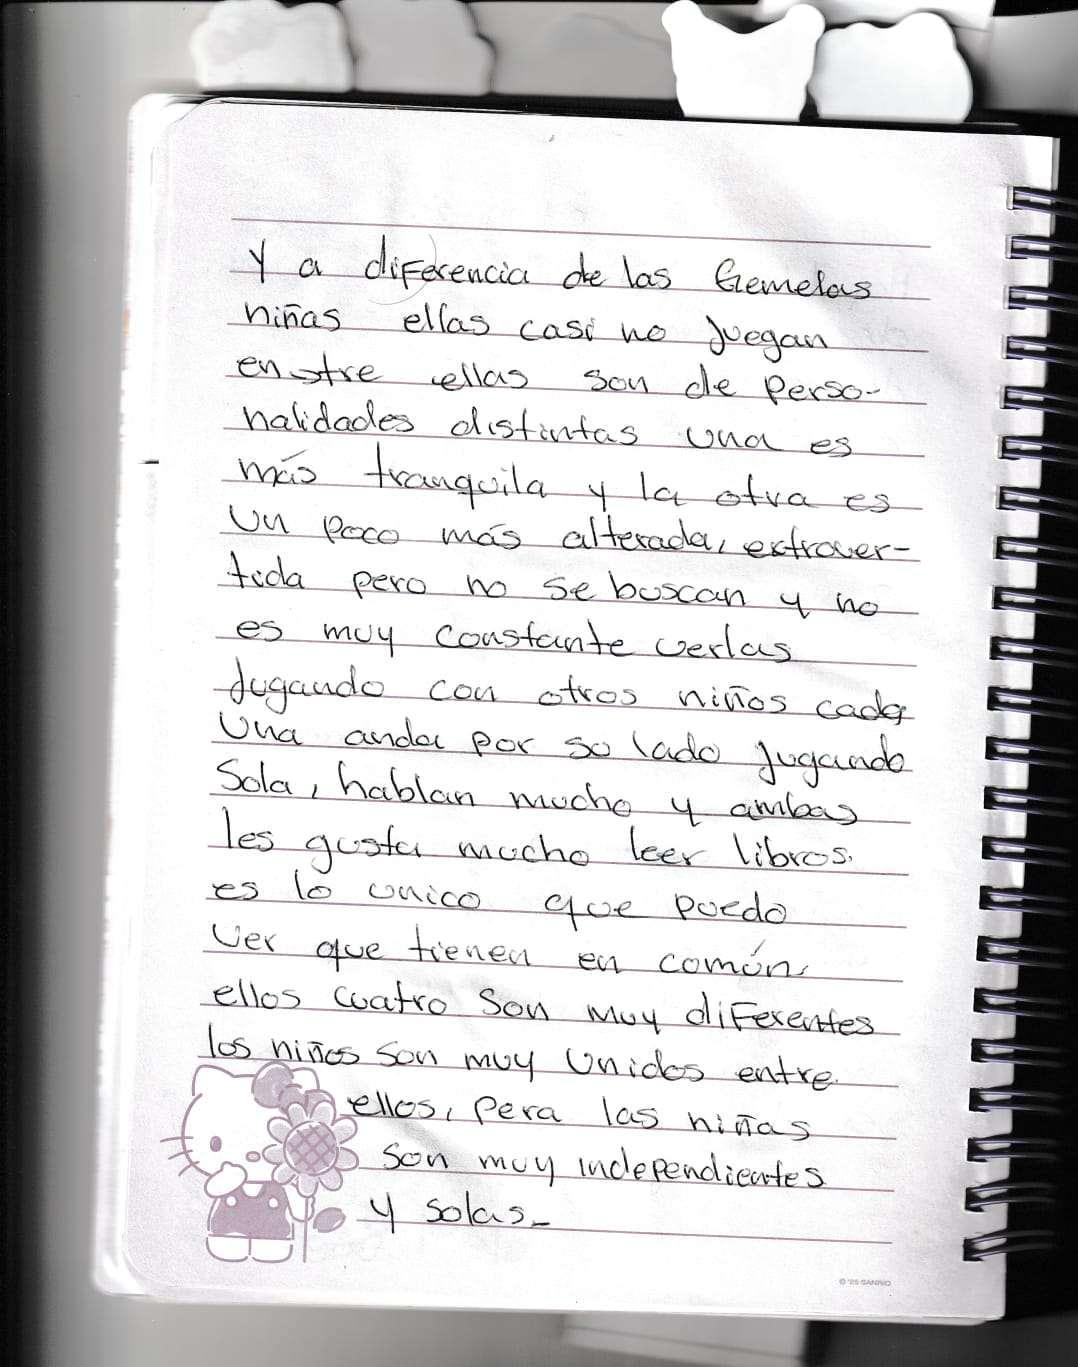 Y a diferencia de las Gemelas
niñas ellas casi no juegan
entre ellas son de perso-
nalidades distintas una es
más tranquila y la otra es
un poco más alterada, extrover-
tida pero no se buscan y no
es muy constante verlas
Jugando con otros niños cada
una anda por su lado jugando
Sola, hablan mucho y ambas
les gusta mucho leer libros.
es lo unico que puedo
ver que tienen en común,
ellos cuatro son muy diferentes
los niños son muy unidos entre
ellos, pera las niñas
son muy independientes
y solas_
© '25 SANRIO